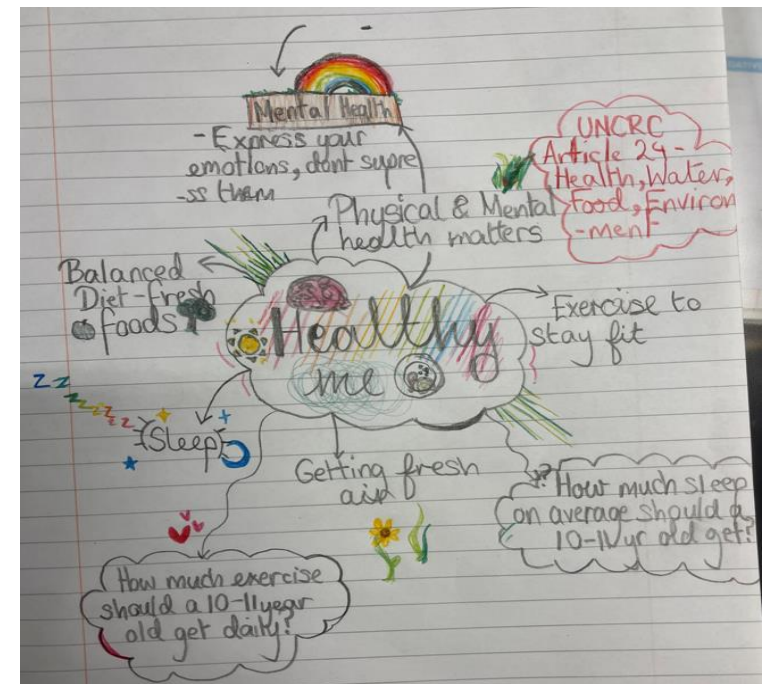 Mental Health
- Express your
emotions, dont supre
-ss them
UNCRC
Article 24 -
Health, Water,
Food, Environ
-ment
Physical & Mental
health matters
Balanced
Diet-fresh
foods
Healthy
me
Exercise to
stay fit
z z
z z z z z z z
Sleep
Getting fresh
air
How much sleep
on average should a
10-11yr old get?
How much exercise
should a 10-11year
old get daily?